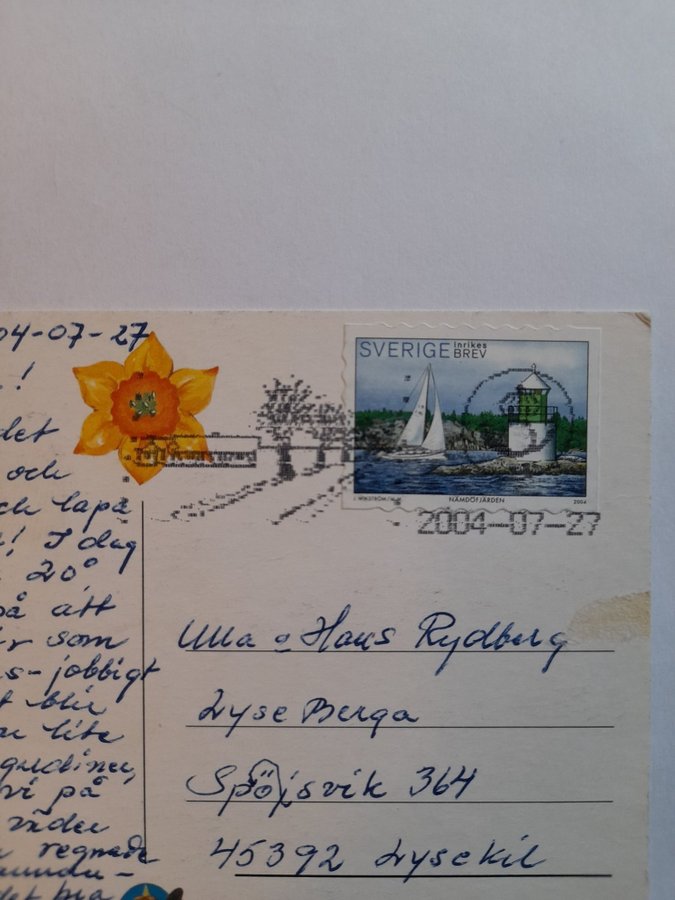 04-07-27
!
det
och
ch lapa
! I dag
20°
på att
som
s-jobbigt
t blir
lite
gudinu,
vi på
väder
regnade
det bra
SVERIGE Inrikes
BREV
NÄMDÖFJÄRDEN 2004
2004-07-27
Ulla o Hans Rydberg
Lyse Berga
Spöjsvik 364
45392 Lysekil